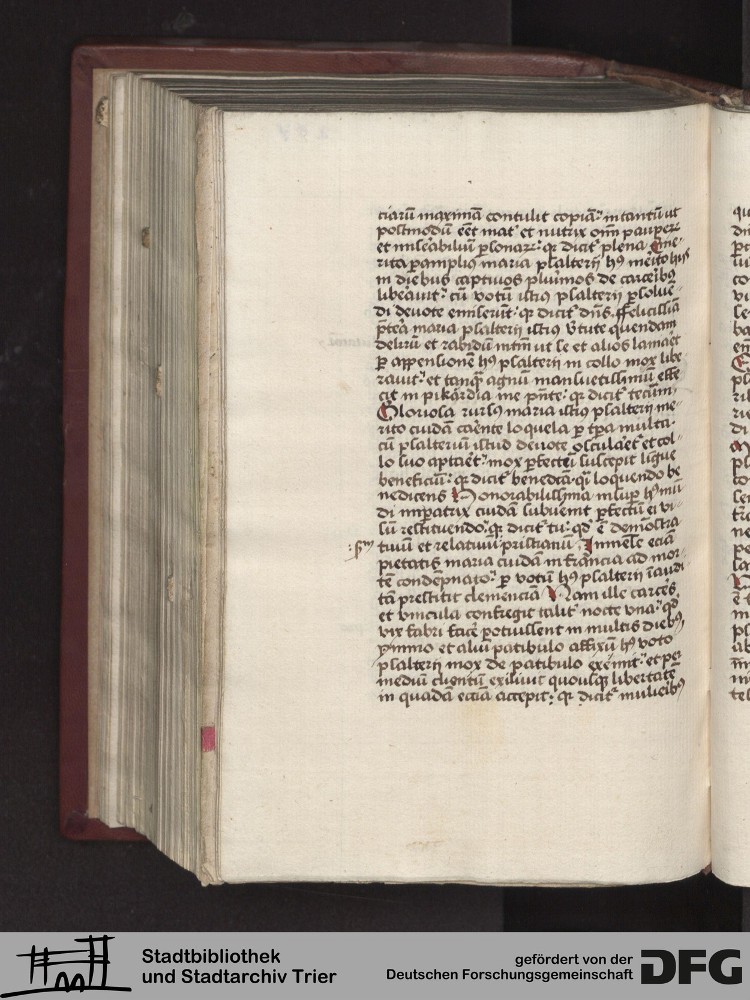 ciarū maximā contulit copiā: in tantū ut
postmodū eēt mat' et nutrix oīm paupeꝝ
et miserabiliū ꝑsonaꝝ: qꝛ dicit' plena. Eme-
rita ꝑamplius maria psalterij hꝰ mēito hijs
in diebus captiuos plurimos de carceribꝰ
liberauit: cū votū istiꝰ psalterij ꝑsolue-
di deuote emiserūt: qꝛ dicit' dn̄s. Felicissīa
p̄tea maria psalterij istiꝰ v̄tute quendam
delirū et rabidū intm̄ ut se et alios laniaēt
ꝑ appensionē hꝰ psalterij in collo mox libe
rauit: et tanqꝫ agnū mansuetissimū effe
cit in pikardia me pn̄te: qꝛ dicit' tecum.
Gloriosa rursꝰ maria istiꝰ psalterij me-
rito cuidā carente loquela ꝑ tꝑa multa:
cū psalteriū istud deuote oscularet et col-
lo suo aptaret: mox ꝑfectū suscepit ligue
beneficiū: qꝛ dicit' benedcā: qi loquendo be
nedicens Honorabilissima insuꝑ hꝰ mū
di imꝑatrix cuidā subuenit ꝑfectū ei vi-
sū restituendo: qꝛ dicit' tu: qd' ē demōstra
tiuū et relatiuū pristianū. Inmēse eciā
pietatis maria cuidā in francia ad mor-
tē condēpnato: ꝑ votū hꝰ psalterij iaudi-
tā prestitit clemenciā Nam ille carceres
et vincula confregit talit' nocte vna: qd'
vix fabri facē potuissent in multis diebꝰ,
ymmo et aliū patibulo affixū hꝰ voto
psalterij mox de patibulo exemit: et per
mediū cligentiū exiliuit quousqꝫ libertatē
in quadā eccīa accepit: qꝛ dicit' mulieribꝰ
Stadtbibliothek
und Stadtarchiv Trier
gefördert von der
Deutschen Forschungsgemeinschaft
DFG